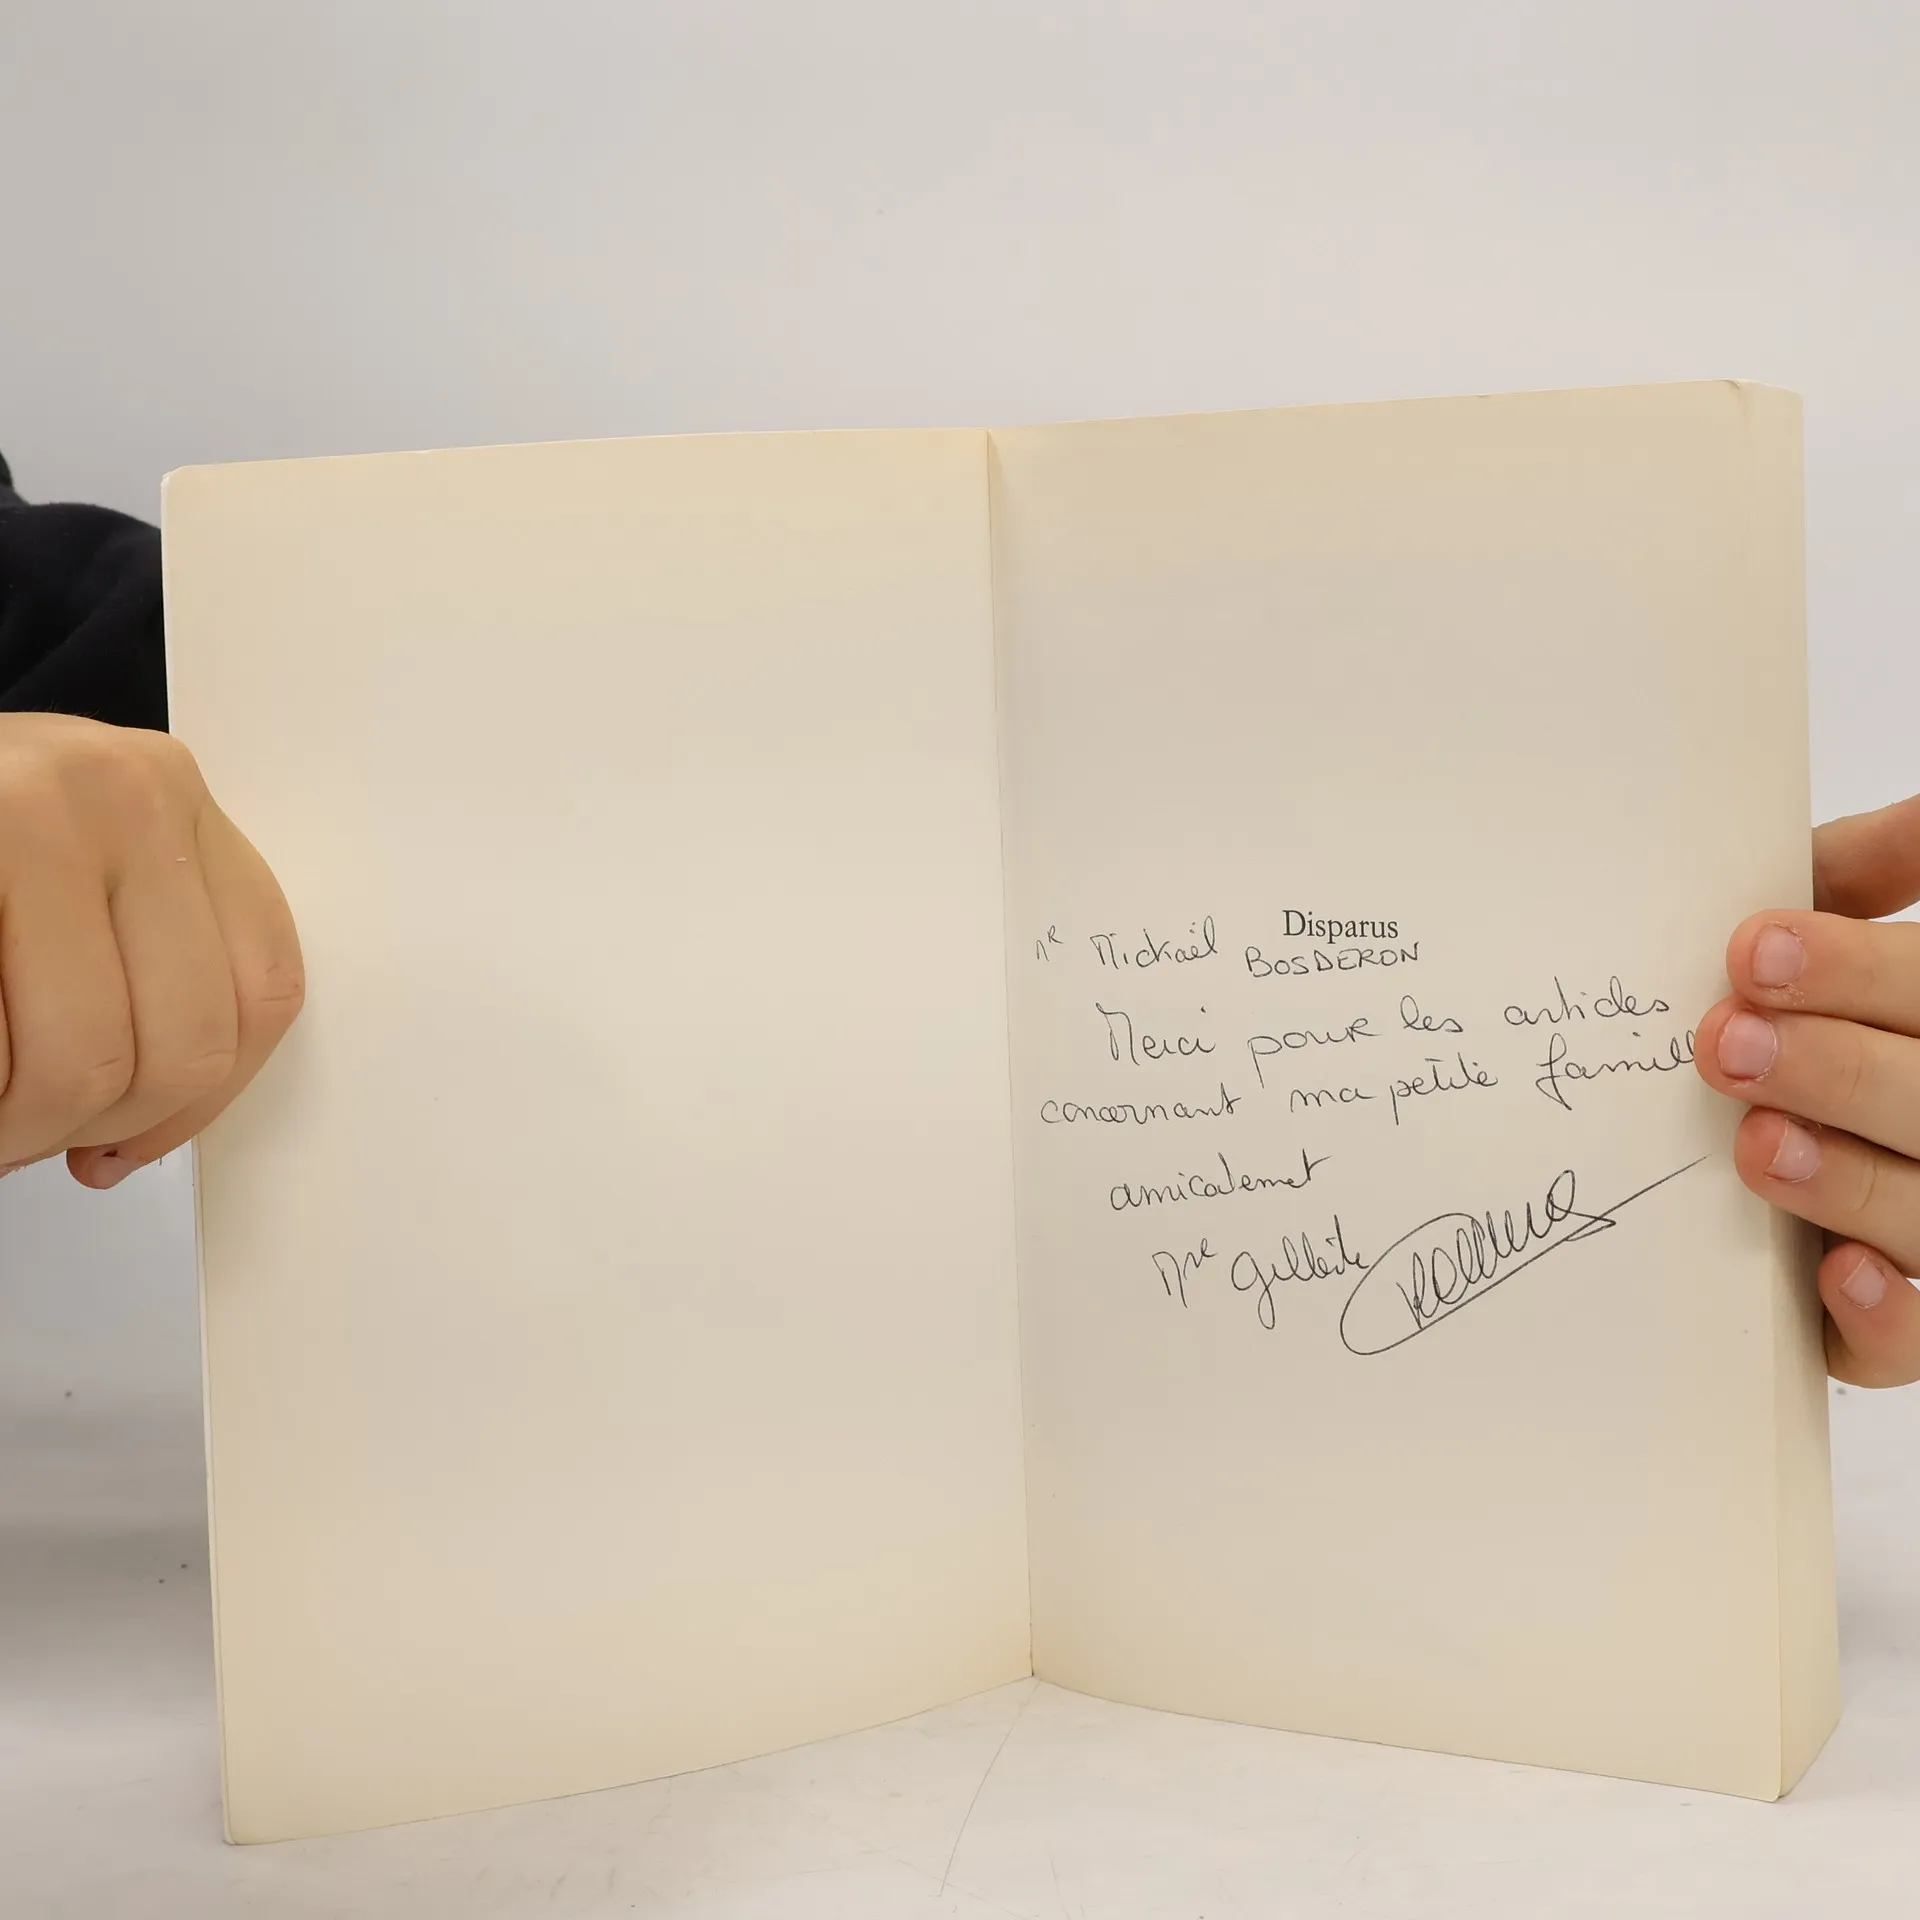 Disparus
MR Mickaël BOSDERON
Merci pour les articles
concernant ma petite famill
amicalemet
Mme Gilberte